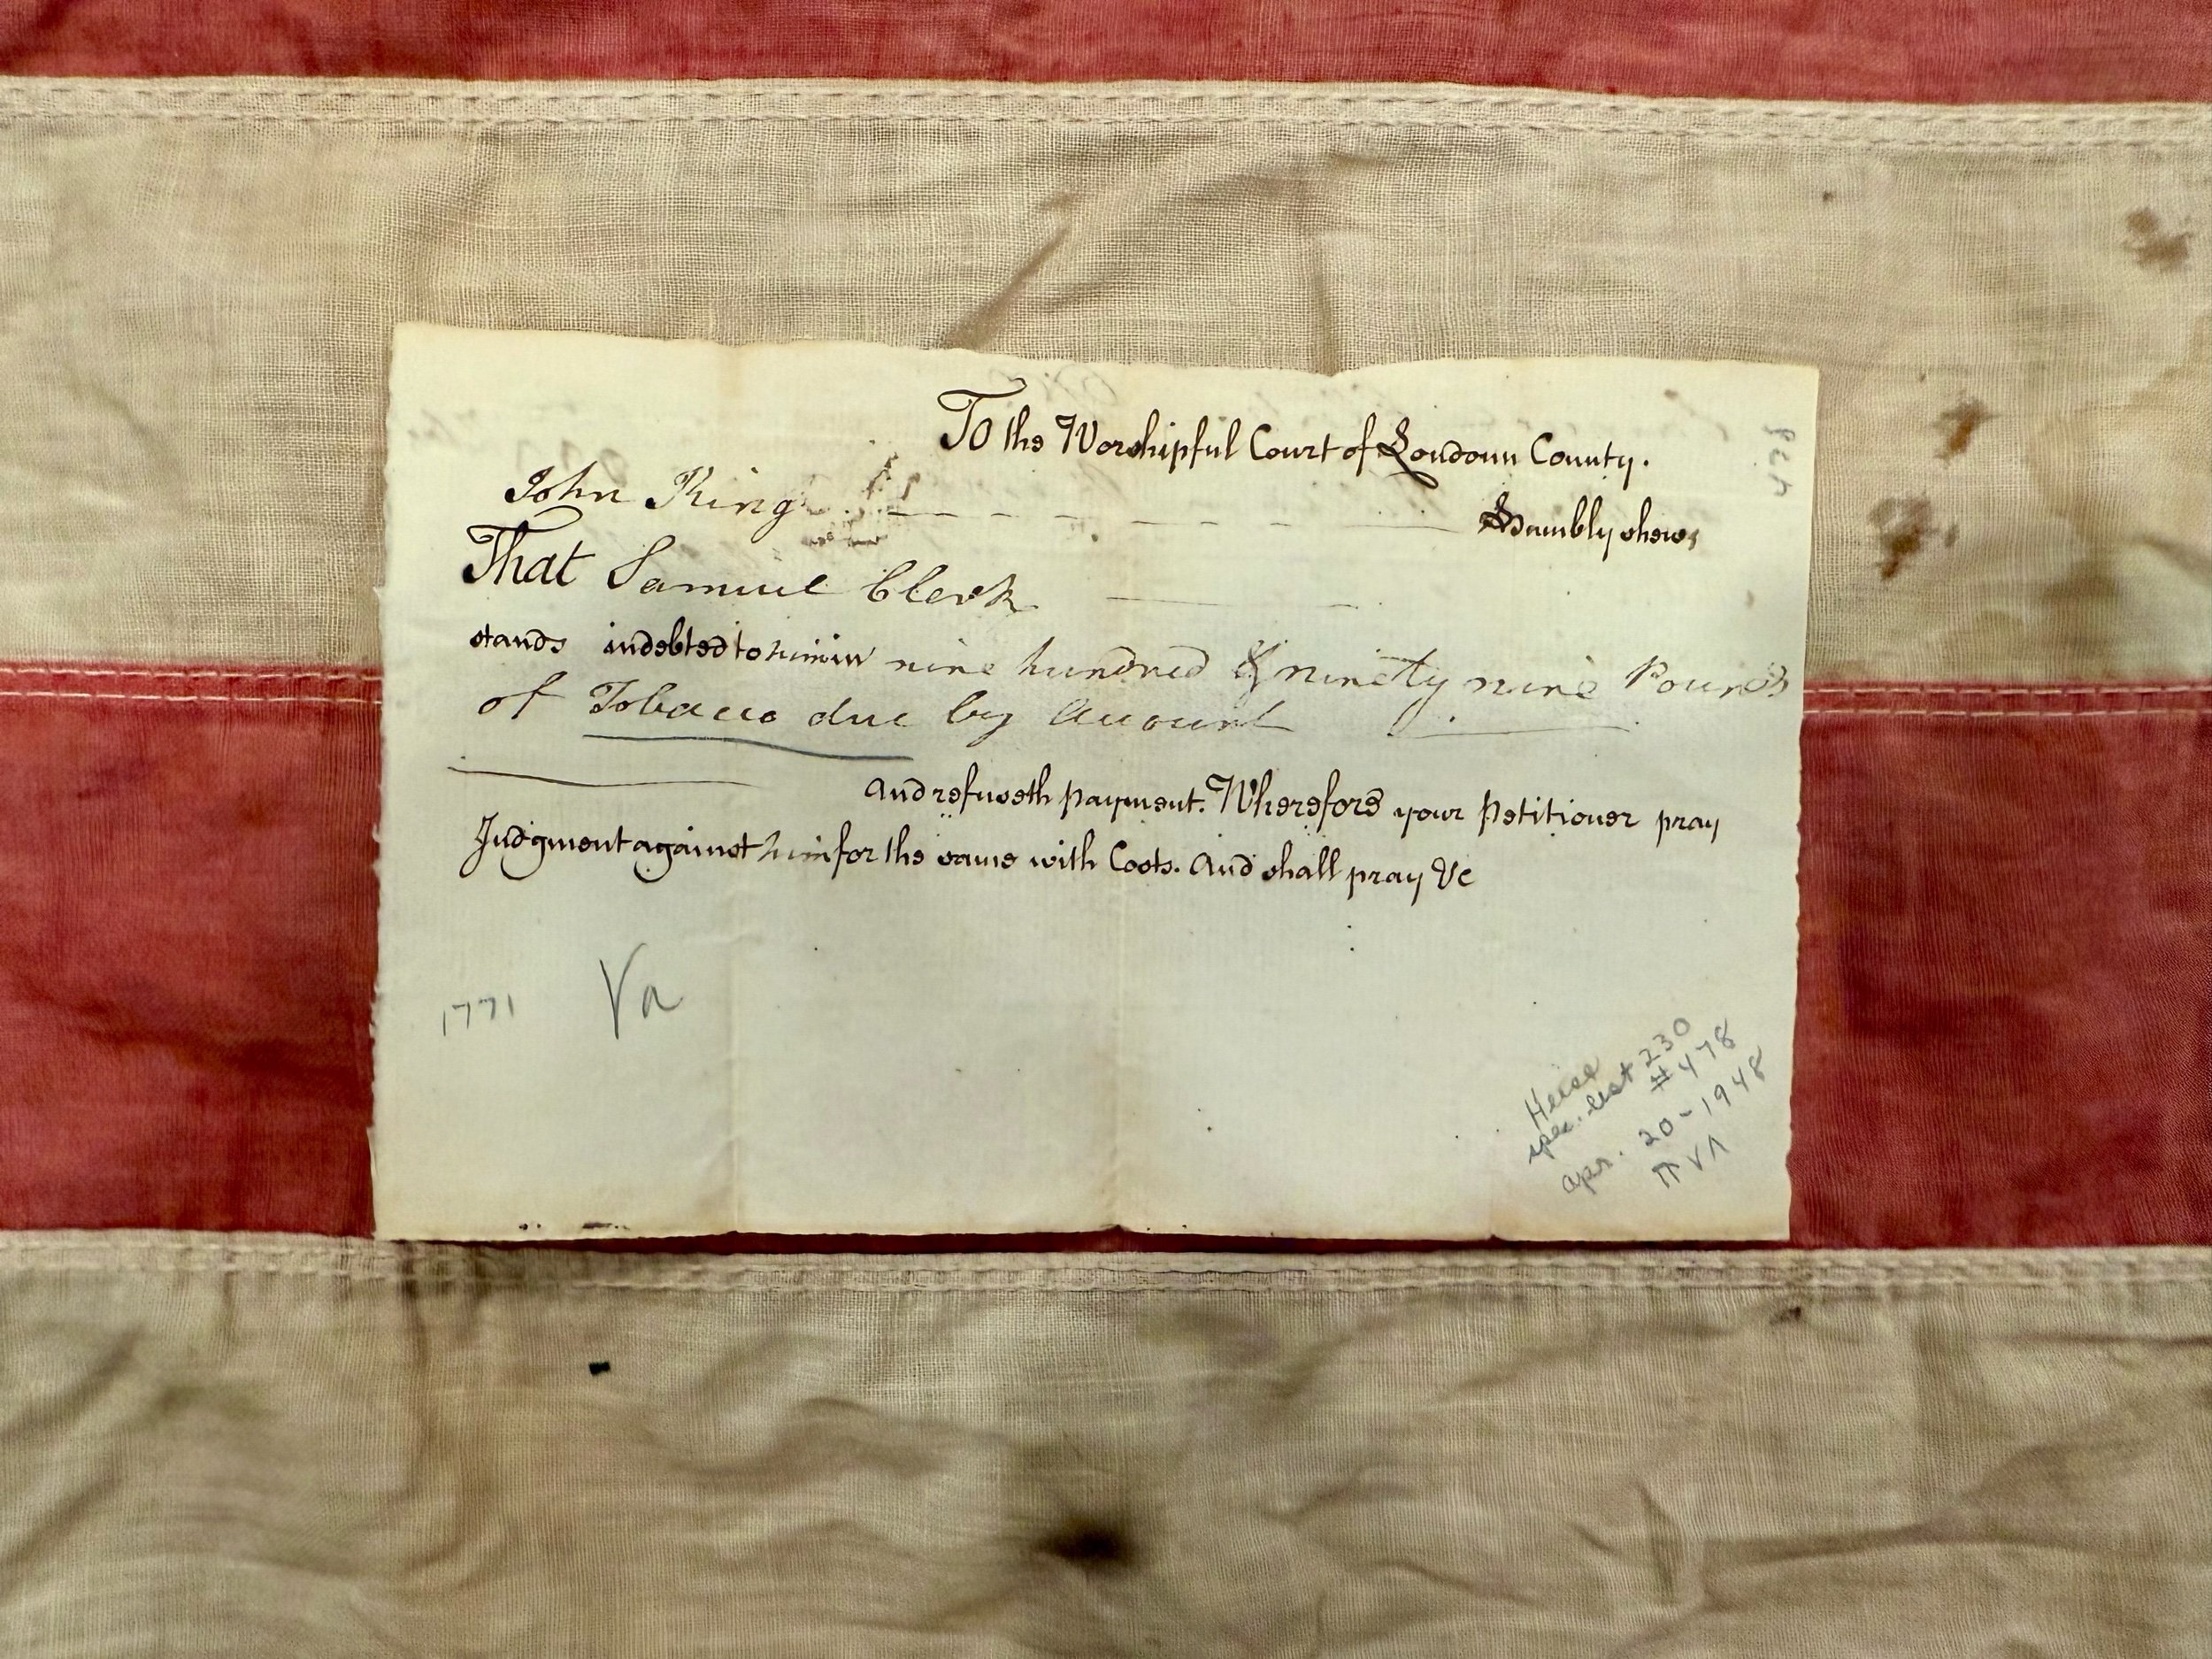 To the Worshipful Court of Loudoun County.
John King Humbly shews
That Samuel Clerk
stands indebted to him in nine hundred & ninety nine Pounds
of Tobacco due by Account
and refuseth payment. Wherefore your Petitioner pray
Judgment against him for the same with Costs. And shall pray &c
1771 Va
Heise
spec. list 230
#478
Apr. 20-1948
478